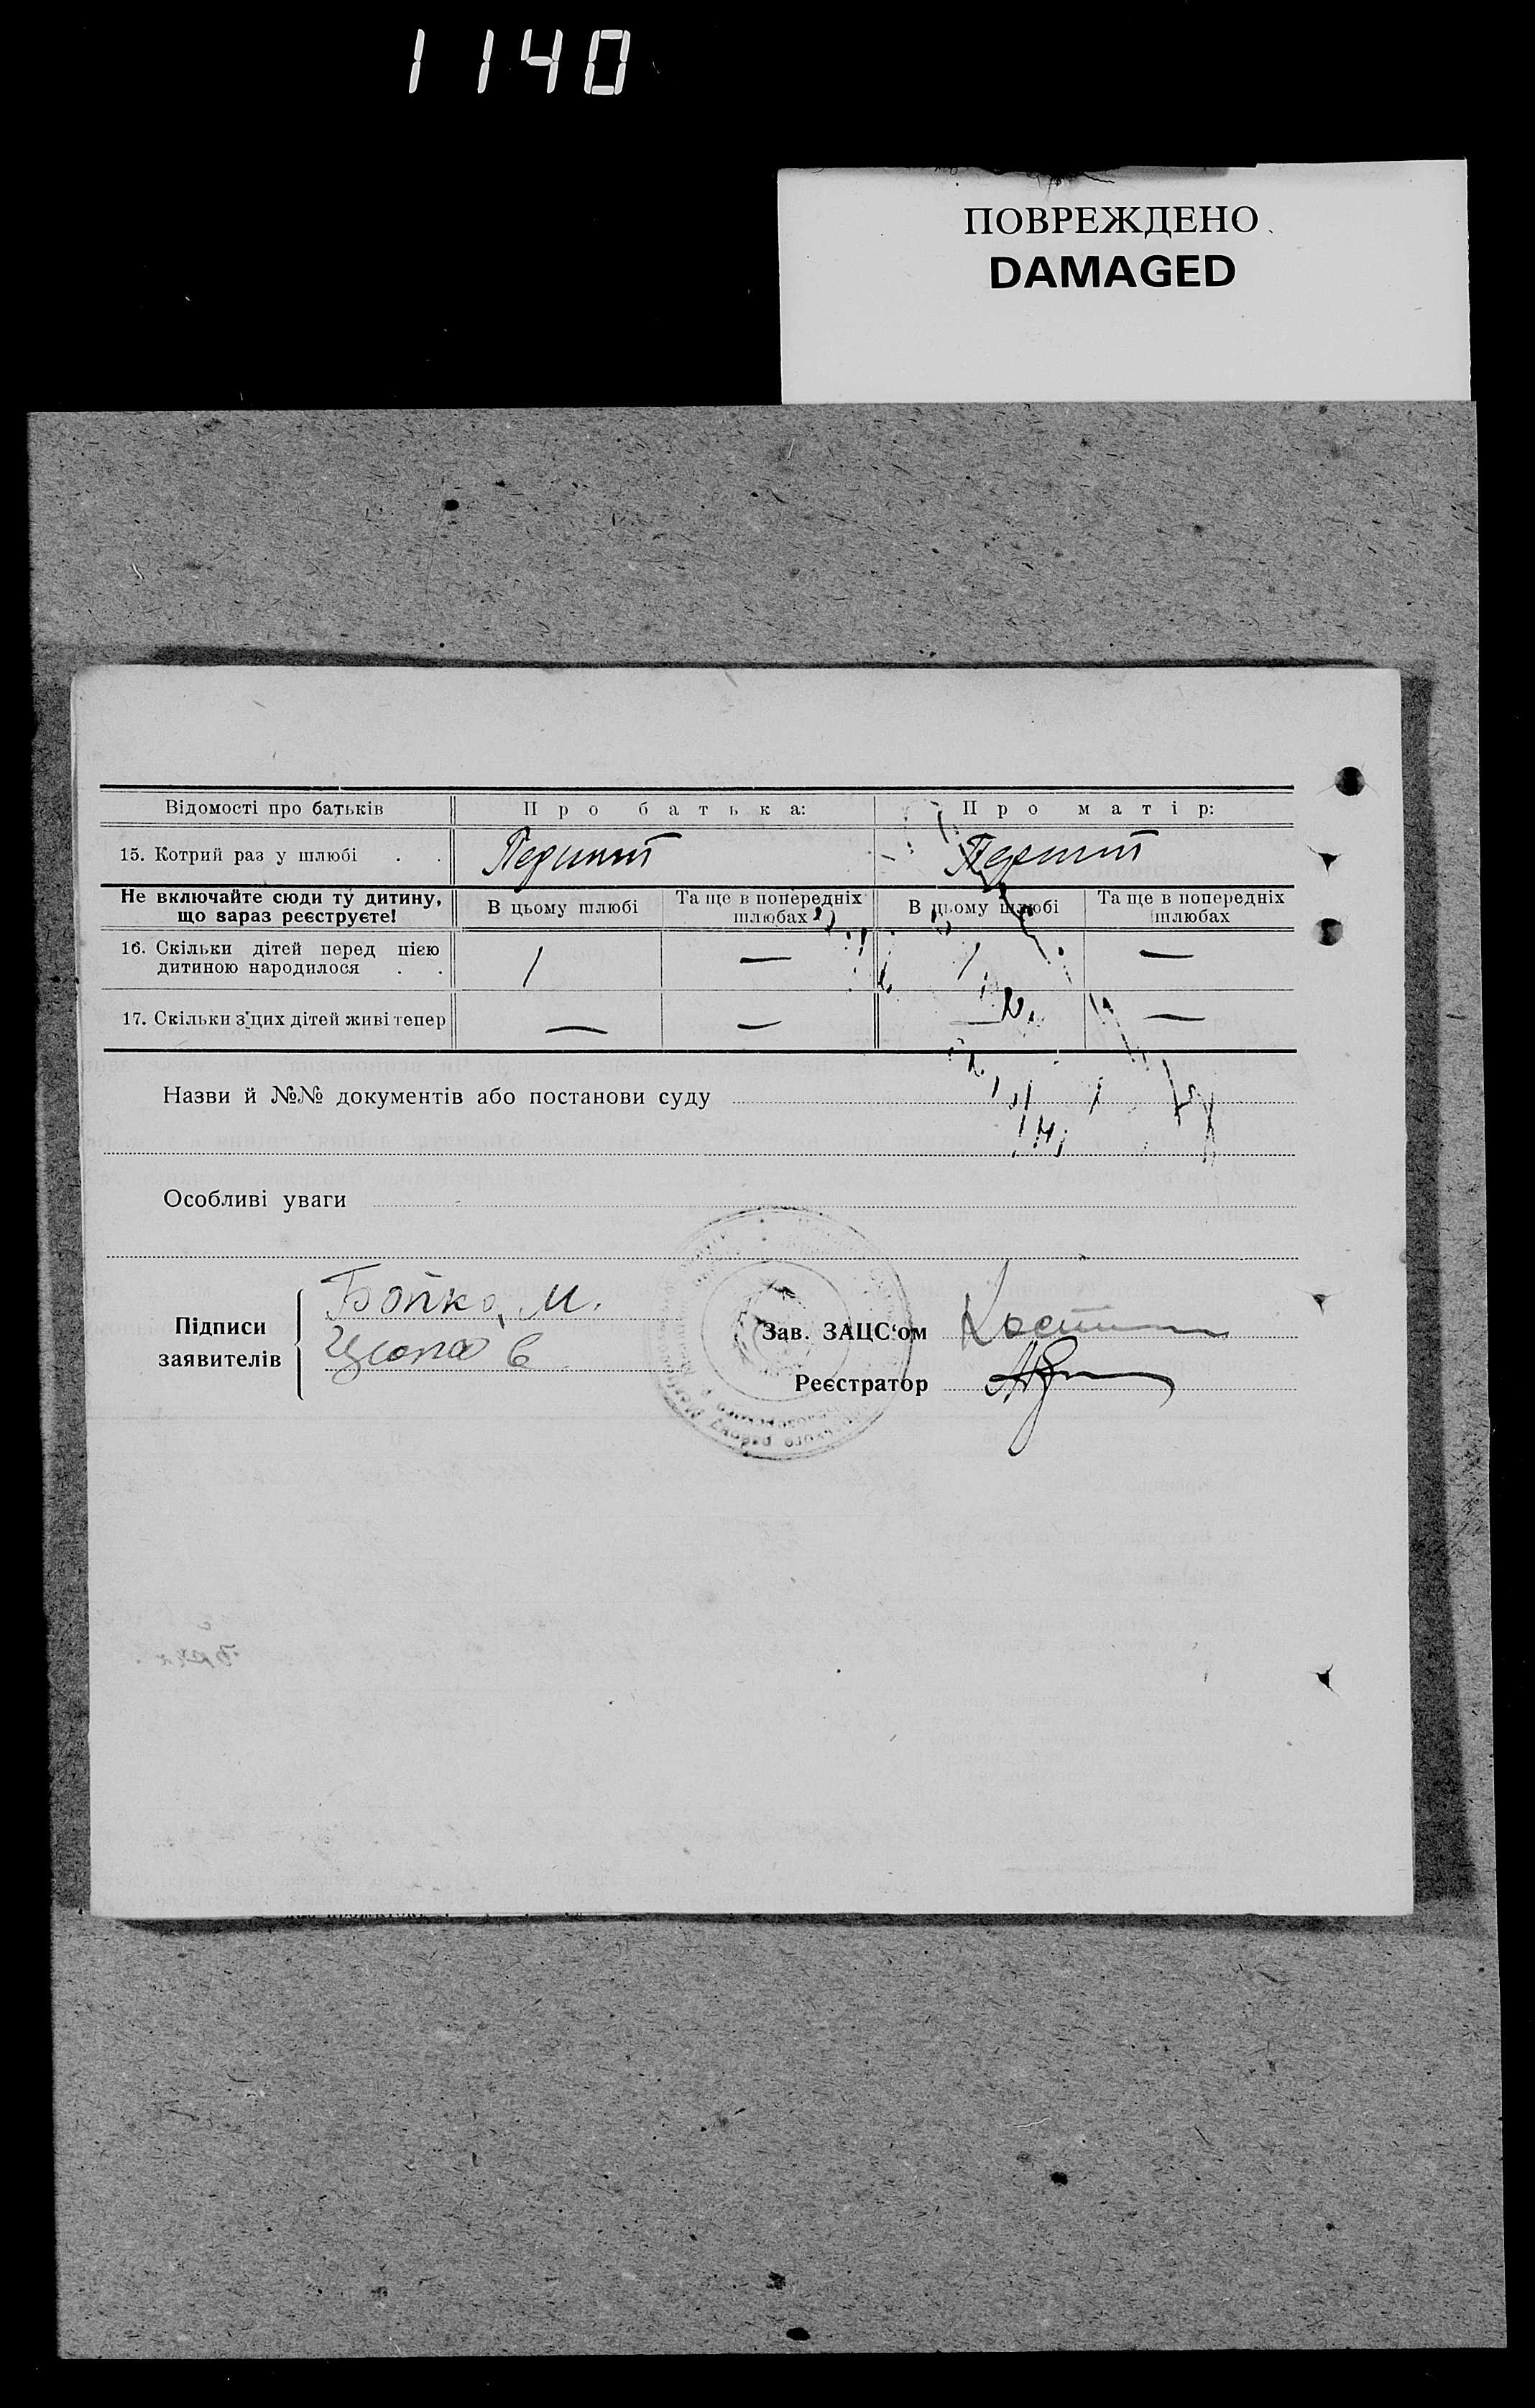 1140
ПОВРЕЖДЕНО
DAMAGED
Відомості про батьків Про батька: Про матір:
15. Котрий раз у шлюбі . . Перший Перший
Не включайте сюди ту дитину, що зараз реєструєте! В цьому шлюбі Та ще в попередніх шлюбах В цьому шлюбі Та ще в попередніх шлюбах
16. Скільки дітей перед цією
дитиною народилося . . 1 — 1 —
17. Скільки з цих дітей живі тепер — — — —
Назви й №№ документів або постанови суду
Особливі уваги
Підписи
заявителів
Бойко, М.
Зав. ЗАЦС'ом
Реєстратор